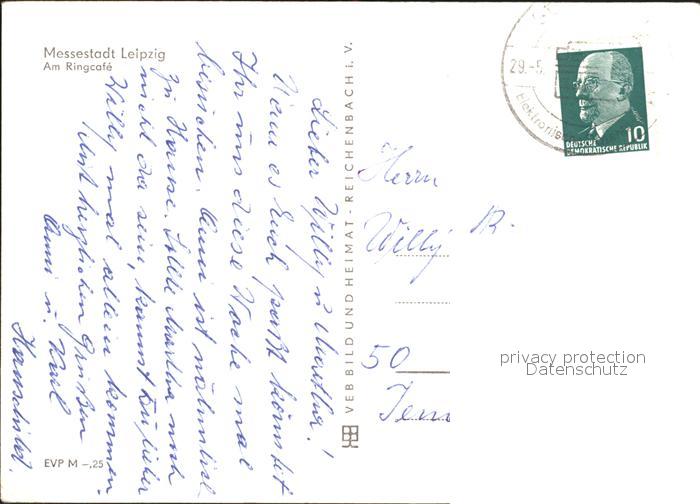 Messestadt Leipzig
Am Ringcafé
Lieber Willy u. Martha!
Wenn es Euch paßt könntet
Ihr uns diese Woche mal
besuchen. Anni ist nämlich
zu Hause. Sollte Martha noch
nicht da sein, kannst Du lieber
Willy mal allein kommen.
Mit herzlichen Grüßen
Anni u. Karl
EVP M –,25
VEB BILD UND HEIMAT · REICHENBACH i. V.
29.-5.
Elektronis
10
DEUTSCHE
DEMOKRATISCHE REPUBLIK
Herrn
Willy R.
50
privacy protection
Datenschutz